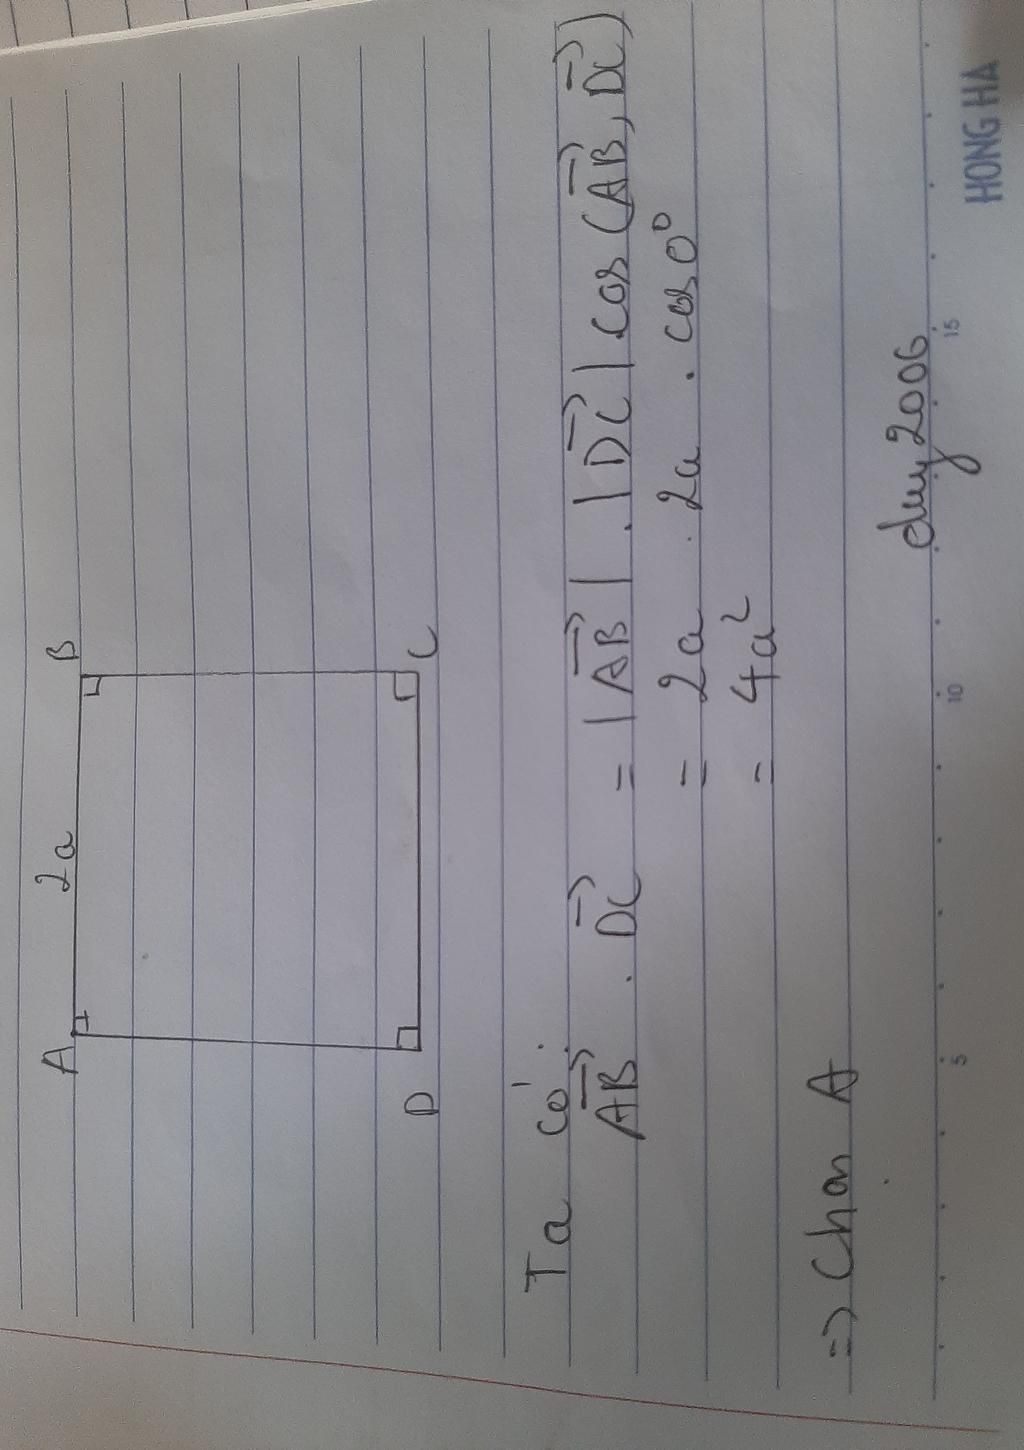 A 2a B
D C
Ta có:
$\overrightarrow{AB} . \overrightarrow{DC} = |\overrightarrow{AB}| . |\overrightarrow{DC}| cos (\overrightarrow{AB}, \overrightarrow{DC})$
= 2a . 2a . cos 0°
= 4a²
=> Chọn A
duy2006
5 10 15
HONG HA